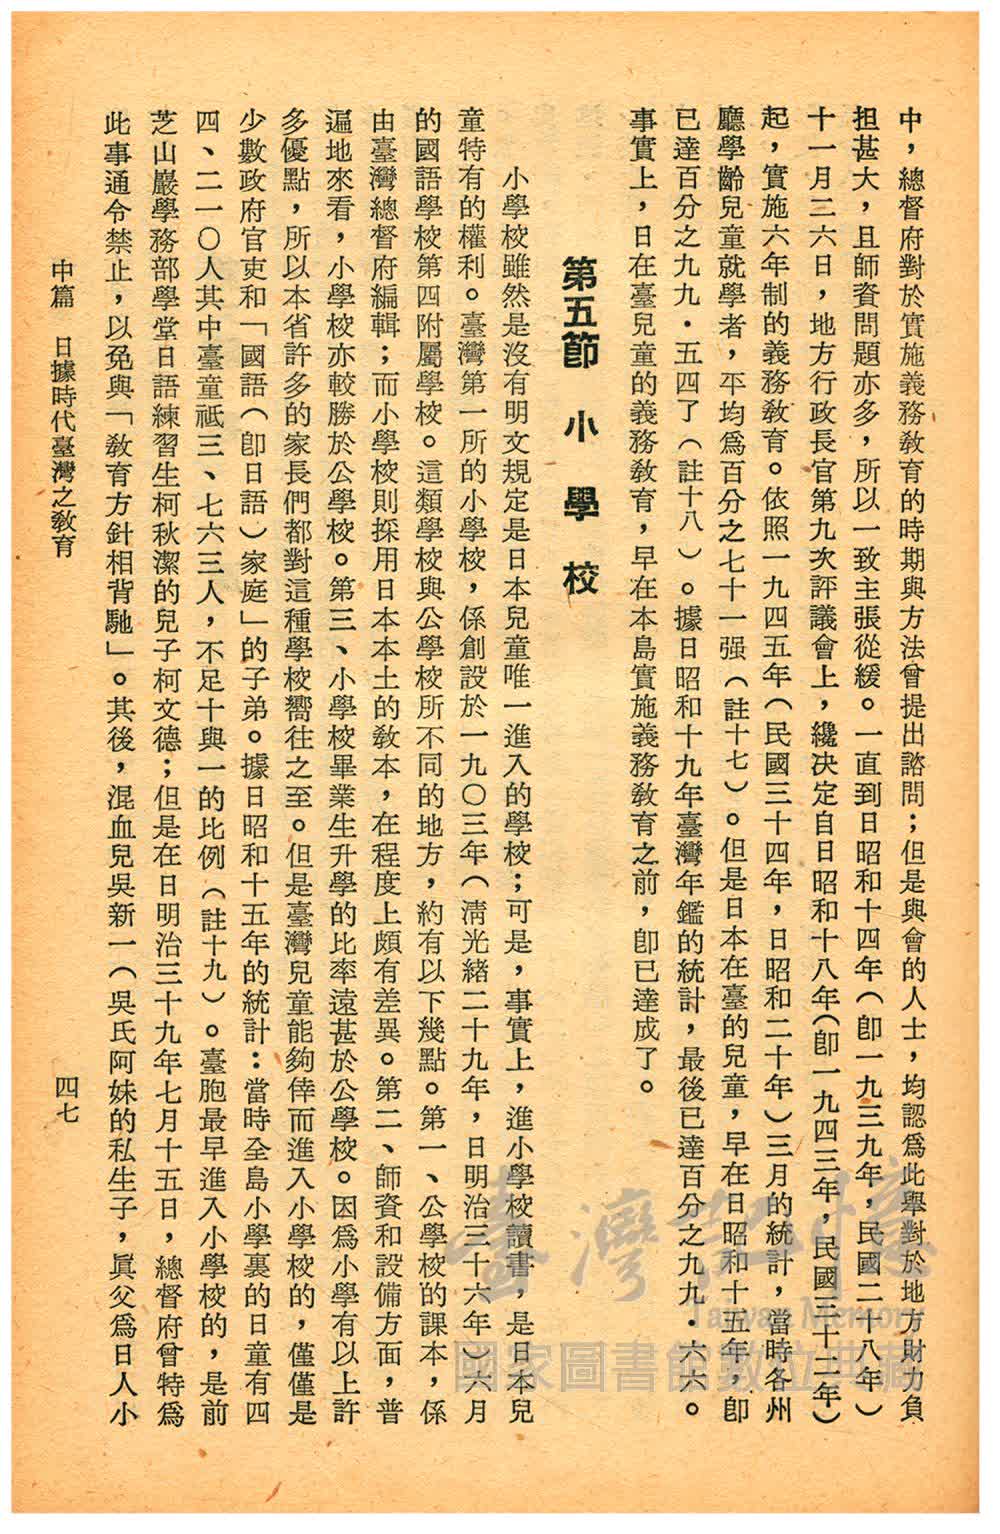 中，總督府對於實施義務敎育的時期與方法曾提出諮問；但是與會的人士，均認爲此舉對於地方財力負
担甚大，且師資問題亦多，所以一致主張從緩。一直到日昭和十四年（卽一九三九年，民國二十八年）
十一月三六日，地方行政長官第九次評議會上，纔決定自日昭和十八年（卽一九四三年，民國三十二年）
起，實施六年制的義務敎育。依照一九四五年（民國三十四年，日昭和二十年）三月的統計，當時各州
廳學齡兒童就學者，平均爲百分之七十一强（註十七）。但是日本在臺的兒童，早在日昭和十五年，卽
已達百分之九九．五四了（註十八）。據日昭和十九年臺灣年鑑的統計，最後已達百分之九九．六六。
事實上，日在臺兒童的義務敎育，早在本島實施義務敎育之前，卽已達成了。
第五節 小學校
小學校雖然是沒有明文規定是日本兒童唯一進入的學校；可是，事實上，進小學校讀書，是日本兒
童特有的權利。臺灣第一所的小學校，係創設於一九〇三年（淸光緖二十九年，日明治三十六年）六月
的國語學校第四附屬學校。這類學校與公學校所不同的地方，約有以下幾點。第一、公學校的課本，係
由臺灣總督府編輯；而小學校則採用日本本土的敎本，在程度上頗有差異。第二、師資和設備方面，普
遍地來看，小學校亦較勝於公學校。第三、小學校畢業生升學的比率遠甚於公學校。因爲小學有以上許
多優點，所以本省許多的家長們都對這種學校嚮往之至。但是臺灣兒童能夠倖而進入小學校的，僅僅是
少數政府官吏和「國語（卽日語）家庭」的子弟。據日昭和十五年的統計：當時全島小學裏的日童有四
四、二一〇人其中臺童祗三、七六三人，不足十與一的比例（註十九）。臺胞最早進入小學校的，是前
芝山巖學務部學堂日語練習生柯秋潔的兒子柯文德；但是在日明治三十九年七月十五日，總督府曾特爲
此事通令禁止，以免與「敎育方針相背馳」。其後，混血兒吳新一（吳氏阿妹的私生子，眞父爲日人小
中篇 日據時代臺灣之敎育
四七
臺灣記憶
Taiwan Memory
國家圖書館數位典藏